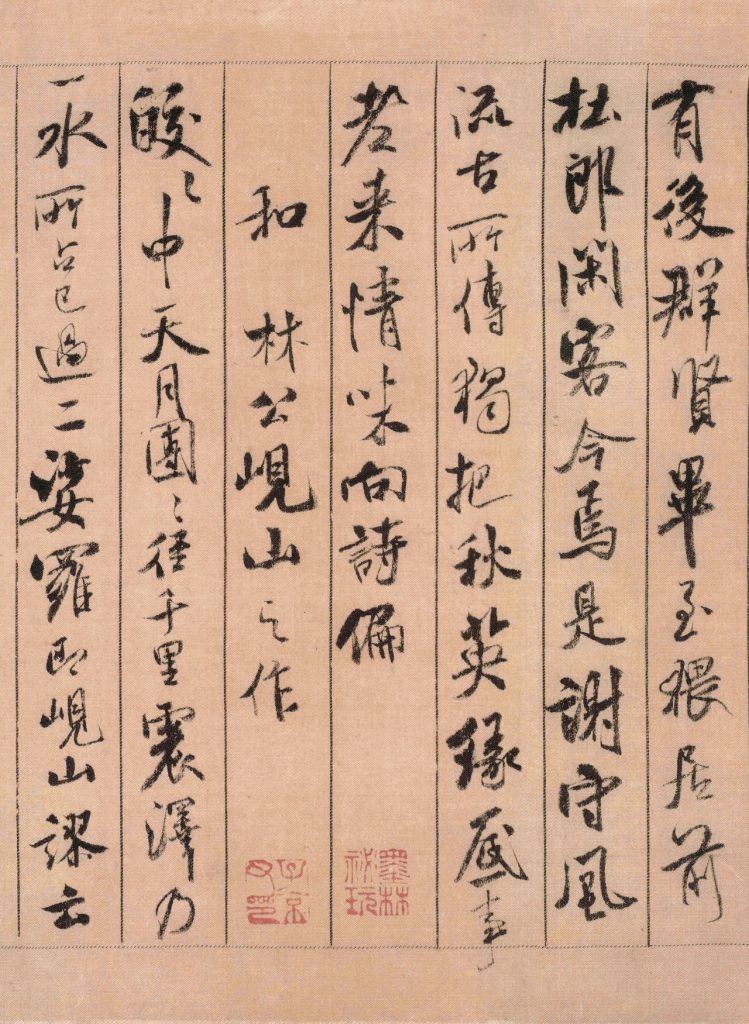 有後群賢畢至猥居前
杜郎閑客今焉是謝守風
流古所傳獨把秋英緣底事
老来情味向詩偏
墨林祕玩
和林公峴山之作
子京父印
皎〻中天月團〻径千里震澤乃
一水所占已過二娑羅即峴山謬云